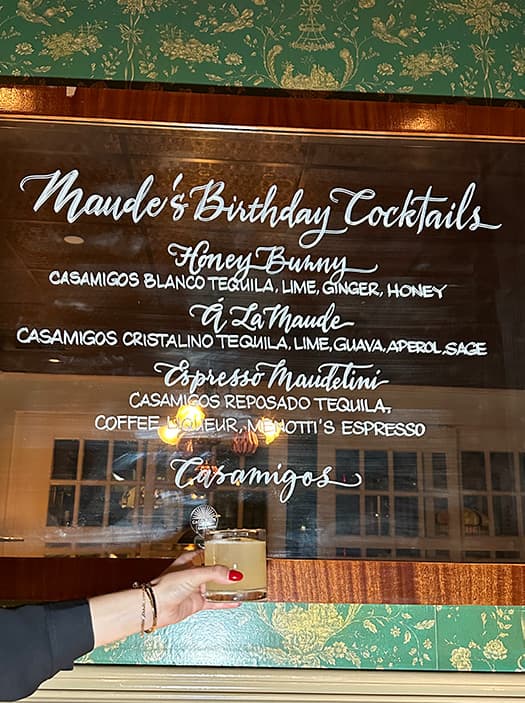 Maude's Birthday Cocktails
Honey Bunny
CASAMIGOS BLANCO TEQUILA, LIME, GINGER, HONEY
Á La Maude
CASAMIGOS CRISTALINO TEQUILA, LIME, GUAVA, APEROL, SAGE
Espresso Maudetini
CASAMIGOS REPOSADO TEQUILA,
COFFEE LIQUEUR, MENOTTI'S ESPRESSO
Casamigos